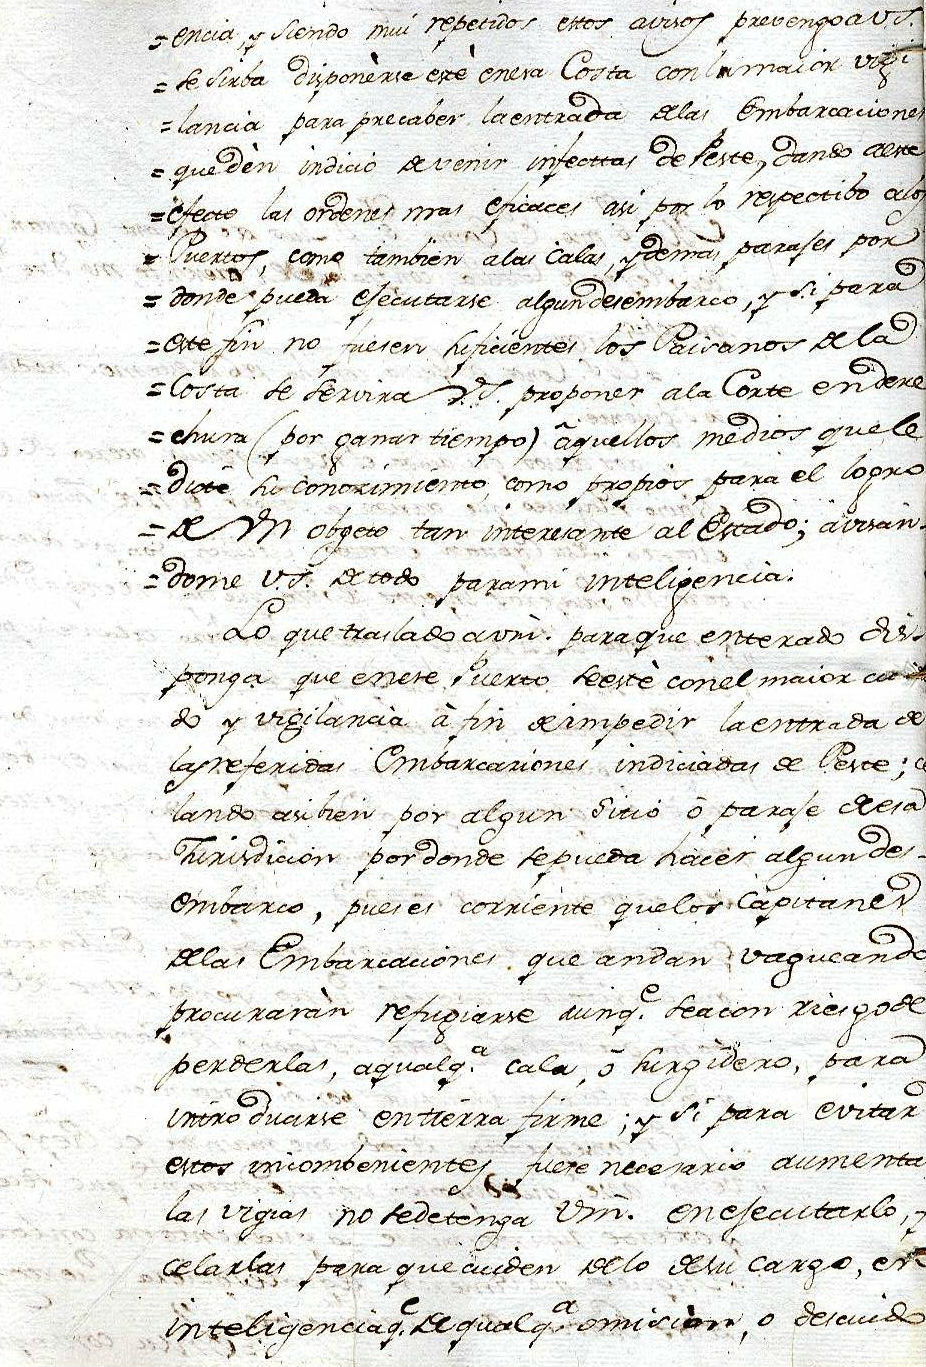 = encia, y siendo mui repetidos estos avisos prevengo a V.S.
= se sirba disponèr se estè en esa Costa con la maior vigi
= lancia para precaber la entrada de las Embarcaciones
= que dèn indicio de venir infecttas de Peste, dando a este
= efecto las ordenes mas eficaces asi por lo respectibo a los
= Puertos, como tambien a las Calas, y demas parajes por
= donde pueda ejecutarse algun desembarco, y si para
= este fin no fuesen suficientes los Paisanos de la
= Costa se servira V.S. proponer a la Corte en dere
= chura (por ganar tiempo) aquellos medios que le
= dicte su conocimiento, como propios para el logro
= de un objeto tan interesante al Estado; avisan-
= dome V.S. de todo para mi inteligencia.
Lo que traslado a vm. para que enterado dis-
ponga que en ese Puerto se estè con el maior
do y vigilancia à fin de impedir la entrada de
las referidas Embarcaciones indiciadas de Peste; ce
lando asi bien por algun sitio ò paraje de esa
Jurisdicion por donde se pueda hacer algun des-
embarco, pues es corriente que los Capitanes
de las Embarcaciones que andan vagueando
procuraràn refugiarse aunq.e sea con riesgo de
perderlas, a qualq.a cala, ò surgidero, para
introducirse en tierra firme; y si para evitar
estos incombenientes fuere necesario aumenta
las vigias no se detenga Vm. en ejecutarlo, y
celarlas para que cuiden de lo de su cargo, en
inteligencia q.e de qualq.a omision, o descuido